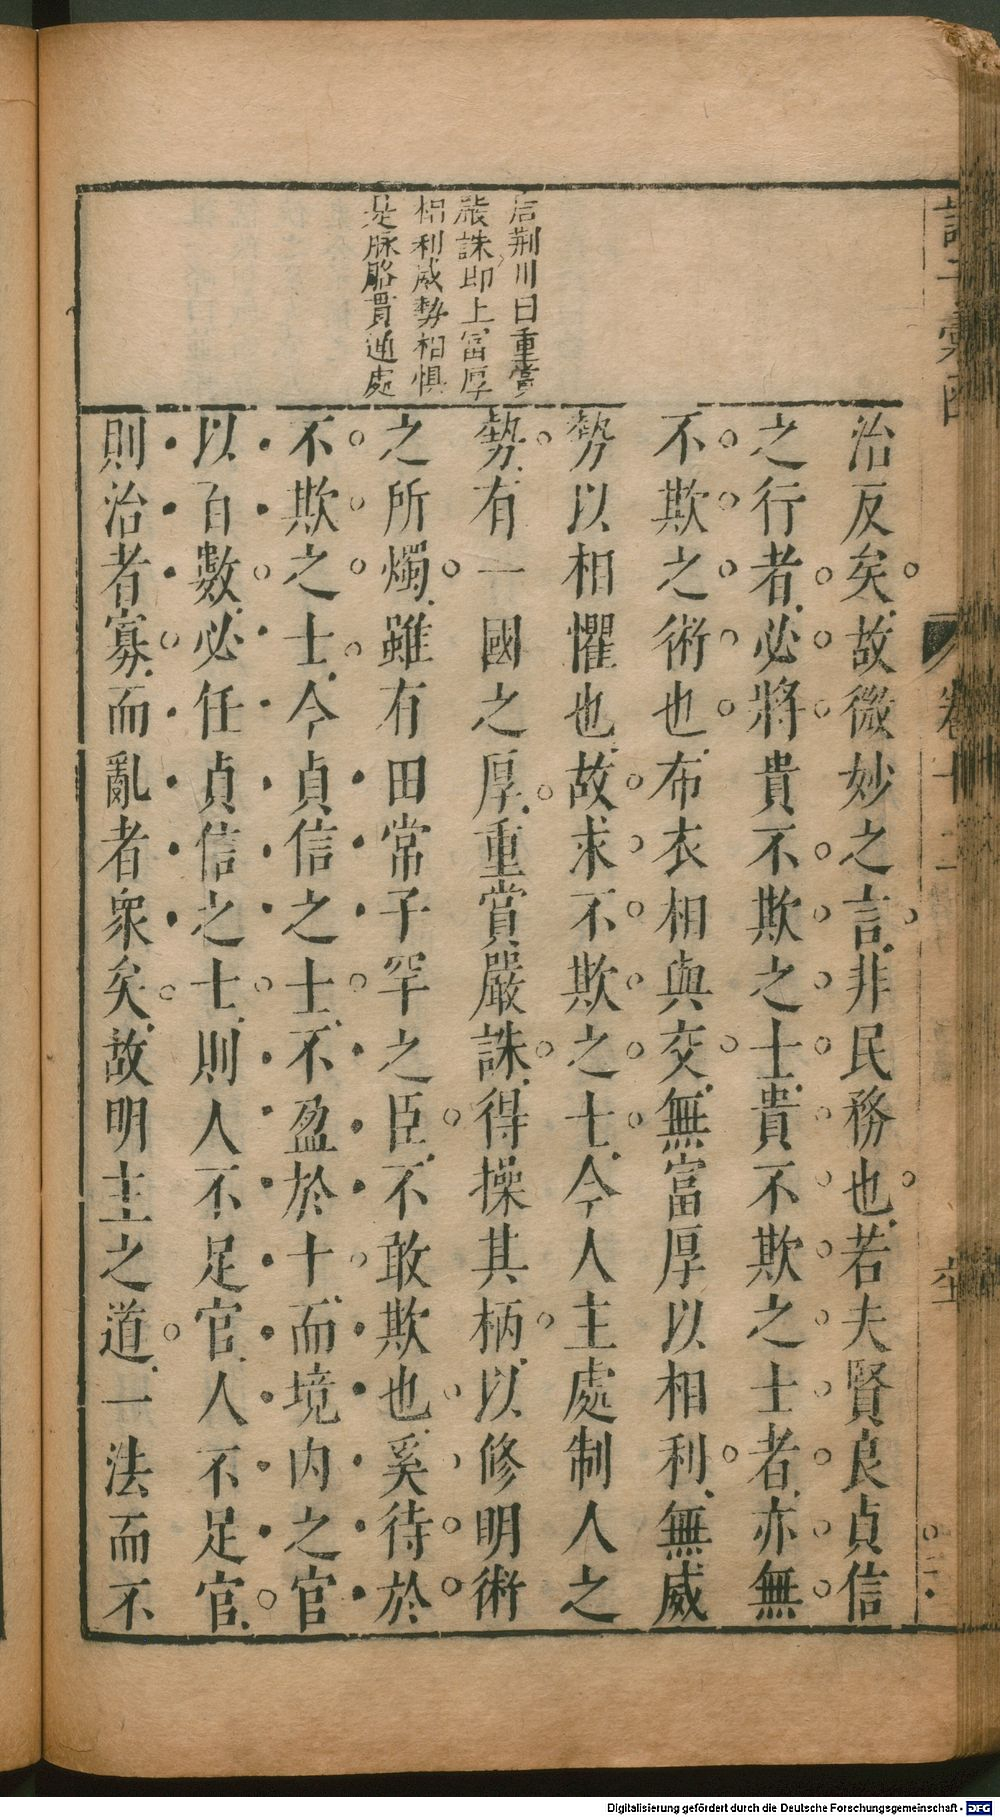 唐荊川曰重賞
嚴誅即上富厚
相利威勢相惧
是脉胳貫通處
治反矣故微妙之言非民務也若夫賢良貞信
之行者必將貴不欺之士貴不欺之士者亦無
不欺之術也布衣相與交無富厚以相利無威
勢以相懼也故求不欺之士今人主處制人之
勢有一國之厚重賞嚴誅得操其柄以修明術
之所燭雖有田常子罕之臣不敢欺也奚待於
不欺之士今貞信之士不盈於十而境内之官
以百數必任貞信之士則人不足官人不足官
則治者寡而亂者衆矣故明主之道一法而不
卷十二
Digitalisierung gefördert durch die Deutsche Forschungsgemeinschaft - DFG